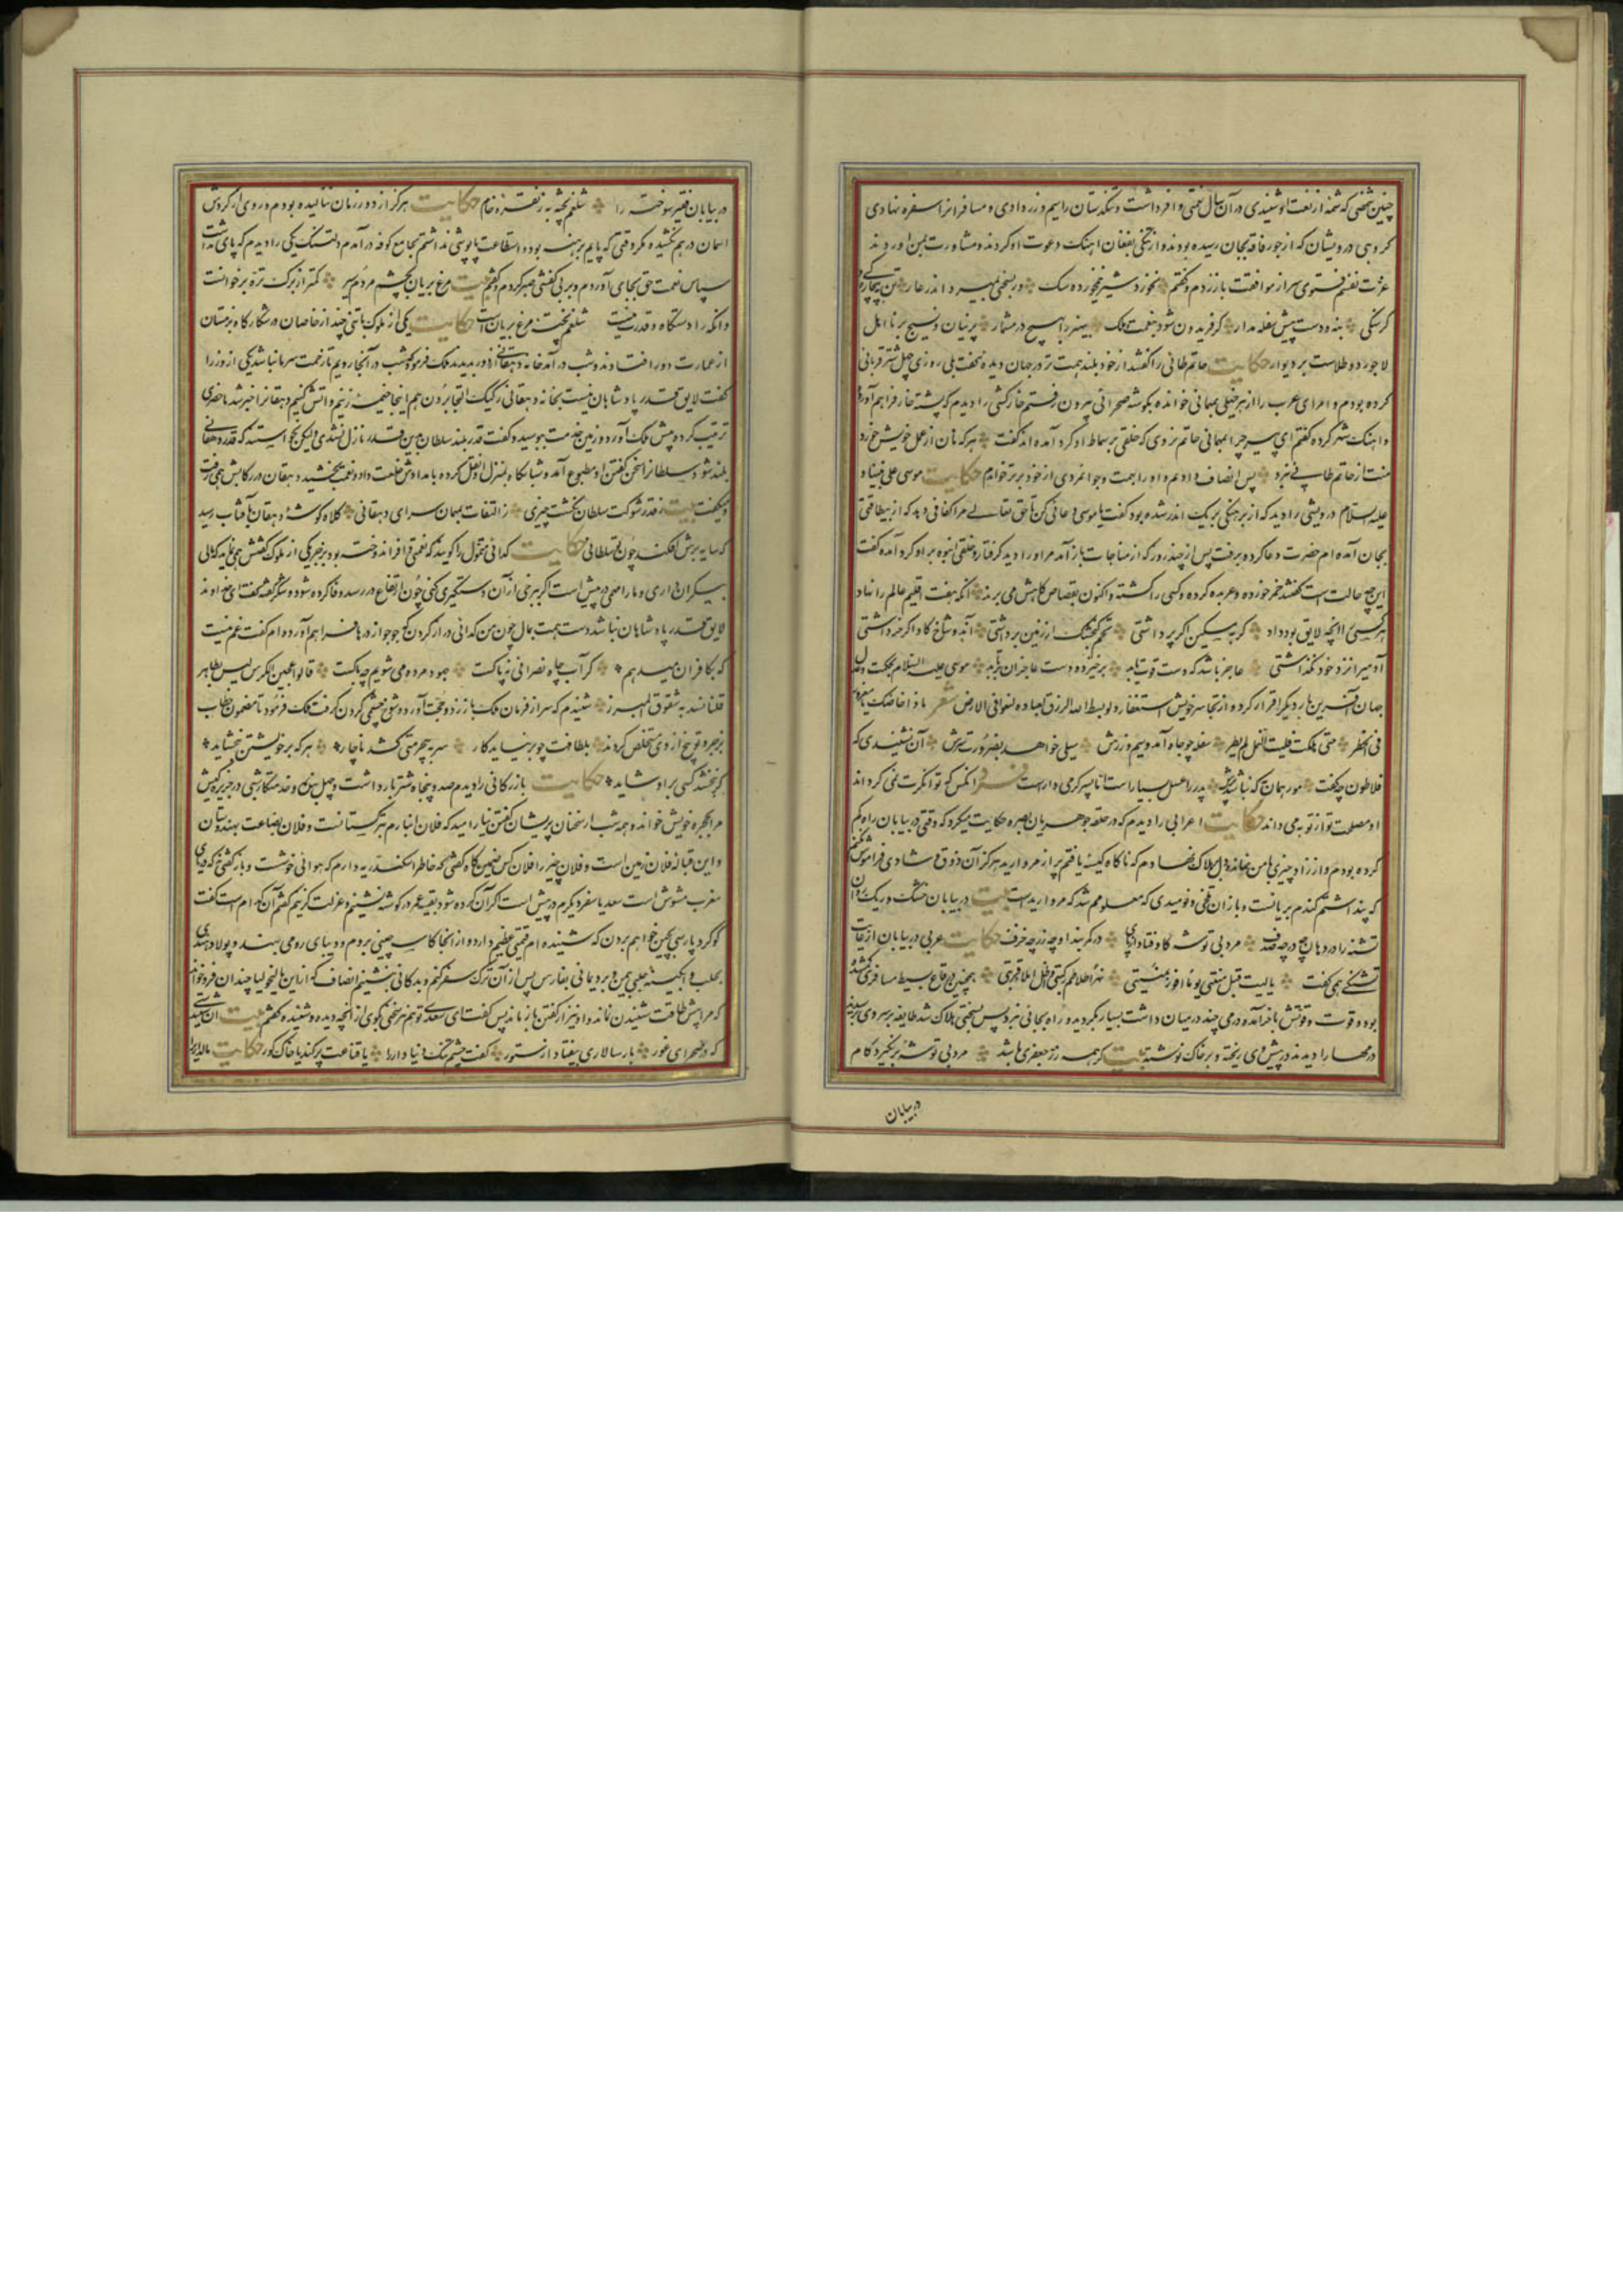 چنین شخصی که شمهٔ از نعت او شنیدی در آن سال نعمتی وافر داشت و تنکدستان را سیم و زر دادی و مسافرانرا سفره نهادی
کروهی درویشان که از جور فاقه بجان رسیده بودند و از تنکی بفغان اهنک دعوت او کردند و مشاورت بمن اوردند
سر از موافقت باز زدم و کفتم نخورد شیر نیمخورده سک ور بسختی بمیرد اندر غار تن بیچارکی
کرسنکی بنه و دست پیش سفله مدار کر فریدون شود بنعمت و ملک بیهنر را بهیچ کس مشمار پرنیان و نسیج بر نا اهل
لاجورد و طلاست بر دیوار حکایت حاتم طائی را کفتند از خود بلند همت تر در جهان دیده کفت بلی روزی چهل شتر قربانی
کرده بودم و امرای عرب را بمهمانی خوانده بکوشه صحرائی بیرون رفتم خارکشی را دیدم که پشته خار فراهم آورده
کفتم ای پسر چرا بمهمانی حاتم نروی که خلقی بر سماط او کرد آمده اند کفت هر که نان از عمل خویش خورد
منت از حاتم طائی نبرد پس انصاف دادم و او را بهمت و جوانمردی از خود برتر خوانم حکایت موسی علی نبینا و
علیه السلام درویشی را دید که از برهنکی بریک اندر شده بود کفت یا موسی دعائی کن تا حق تعالی مرا کفافی دهد که از بیطاقتی
بجان آمده ام حضرت دعا کرد و برفت پس از چند روز که از مناجات باز آمد مر او را دید کرفتار و خلقی انبوه بر او کرد آمده کفت
این چه حالت است کفتند خمر خورده و عربده کرده و کسی را کشته و اکنون بقصاص کاهش می برند انکه هفت اقلیم عالم را نهاد
هر کسی را انچه لایق بود داد کربه مسکین اکر پر داشتی تخم کنجشک از زمین بر داشتی
آدمیرا نزد خود نکذاشتی عاجز باشد که دست قوت یابد برخیزد و دست عاجزان بر تابد موسی علیه السلام بحکمت
جهان آفرین بار دیکر اقرار کرد و از تجاسر خویش استغفار و لو بسط الله الرزق لعباده لبغوا فی الارض شعر ماذا اخاضک یا مغرور
فی الخطر حتی هلکت فلیت النمل لم یطر سفله چو جاه آمد و سیم و زرش سیلی خواهد بضرورت سرش آن نشنیدی که
فلاطون چه کفت مور همان به که نباشد پرش پدر را عسل بسیار است اما پسر کرمی دار است انکس که توانکرت نمی کرداند
او مصلحت تو از تو به می داند حکایت اعرابی را دیدم که در حلقه جوهریان بصره حکایت میکرد که وقتی در بیابان راه کم
کرده بودم و از زاد چیزی با من نمانده دل بر هلاک نهادم که ناکاه کیسهٔ یافتم پر از مروارید هرکز آن ذوق و شادی فراموش نکنم
که پنداشتم کندم بریانست و باز آن تلخی و نومیدی که معلومم شد که مروارید است بیت در بیابان خشک و ریک روان
تشنه را در دهان چه در چه صدف مرد بی توشه کاو فتاد از پای در کمربند او چه زر چه خزف حکایت عربی در بیابان از غایت
تشنکی همی کفت یا لیت قبل منیتی یوما افوز بمنیتی همچنین در قاع بسیط مسافری کم شده
بود و قوت و قوتش باخر آمده و درمی چند در میان داشت بسیار بکردید و راه بجائی نبرد پس بسختی هلاک شد طایفه بر سر وی برسیدند
درمها را دیدند در پیش وی ریخته و بر خاک نوشته بیت کر همه زر جعفری باشد مرد بی توشه بر نکیرد کام
در بیابان
در بیابان فقیر سوخته را شلغم پخته به ز نقره خام حکایت هرکز از دور زمان ننالیده بودم و روی از کردش
اسمان در هم نکشیده مکر وقتی که پایم برهنه بود و استطاعت پاپوشی نداشتم بجامع کوفه در آمدم دلتنک یکی را دیدم که پای نداشت
سپاس نعمت حق بجای آوردم و بر بی کفشی صبر کردم و کفتم بیت مرغ بریان بچشم مردم سیر کمتر از برک تره بر خوانست
وانکه را دستکاه و قدرت نیست شلغم پخته مرغ بریان است حکایت یکی از ملوک با تنی چند از خاصان در شکارکاه بزمستان
از عمارت دور افتادند و شب در آمد خانه دهقانی از دور بدیدند ملک فرمود که شب در آنجا رویم تا زحمت سرما نباشد یکی از وزرا
کفت لایق قدر پادشاهان نیست بخانه دهقانی رکیک التجا بردن هم اینجا خیمه زنیم و اتش کنیم دهقانرا خبر شد ماحضری
ترتیب کرده پیش ملک آورد و زمین خدمت ببوسید و کفت قدر بلند سلطان بدین قدر نازل نشدی ولیکن نخواستند که قدر دهقانی
بلند شود سلطانرا سخن کفتن او مطبوع آمد و شبانکاه بمنزل او نقل کرد و بامدادش خلعت داد و نعمت بخشید دهقان در رکابش همی رفت
و میکفت بیت ز قدر شوکت سلطان نکشت چیزی ز التفات بمهمان سرای دهقانی کلاه کوشهٔ دهقان بآفتاب رسید
که سایه بر سرش افکند چون تو سلطانی حکایت کدائی متمول را کویند که نعمتی وافر اندوخته بود یکی از ملوک کفتش همی نماید که مالی
بیکران داری و ما را مهمی در پیش است اکر ببرخی از آن دستکیری کنی چون ارتفاع در رسد وفا کرده شود و شکر کفته کفت ای خداوند
لایق قدر پادشاهان نباشد دست همت بمال چون من کدائی دراز کردن که جو جو از درها فراهم آورده ام کفت غم نیست
که بکافران میدهم کر آب چاه نصرانی نه پاکست جهود مرده می شویم چه باکست قالوا عجین الکرس لیس بطاهر
قلنا نسد به شقوق المبرز شنیدم که سر از فرمان ملک باز زد و حجت آورد و شوخ چشمی کردن کرفت ملک فرمود تا مضمون خطاب
بزجر و توبیخ از وی تخلص کردند بلطافت چو بر نیاید کار سر به بیحرمتی کشد ناچار هر که بر خویشتن نبخشاید
کر نبخشد کسی بر او شاید حکایت بازرکانی را دیدم صد و پنجاه شتر بار داشت و چهل بنده و خدمتکار شبی در جزیره کیش
مرا بحجره خویش خواند و همه شب از سخنان پریشان کفتن نیارامید که فلان انبارم بترکستانست و فلان بضاعت بهندوستان
و این قباله فلان زمین است و فلان چیز را فلان کس ضمین کاه کفتی که خاطر اسکندریه دارم که هوائی خوشست و باز کفتی نه که دریای
مغرب مشوش است سعدیا سفر دیکرم در پیش است اکر آن کرده شود بقیت عمر در کوشه بنشینم و عزلت کزینم کفتم آن کدام است کفت
کوکرد پارسی بچین خواهم بردن که شنیده ام قیمتی عظیم دارد و از انجا کاسه چینی بروم و دیبای رومی بهند و پولاد هندی
بحلب و آبکینه حلبی بیمن و برد یمانی بفارس پس از آن ترک سفر کنم و بدکانی بنشینم انصاف که از این مالیخولیا چندان فرو خواند
که مرا بیش طاقت شنیدن نماند و او نیز از کفتن باز ماند پس کفت ای سعدی تو هم سخنی بکوی از انچه دیده و شنیده کفتم بیت آن شنیدستی
که در صحرای غور بار سالاری بیفتاد از ستور کفت چشم تنک دنیا دار را یا قناعت پر کند یا خاک کور حکایت مالداریرا